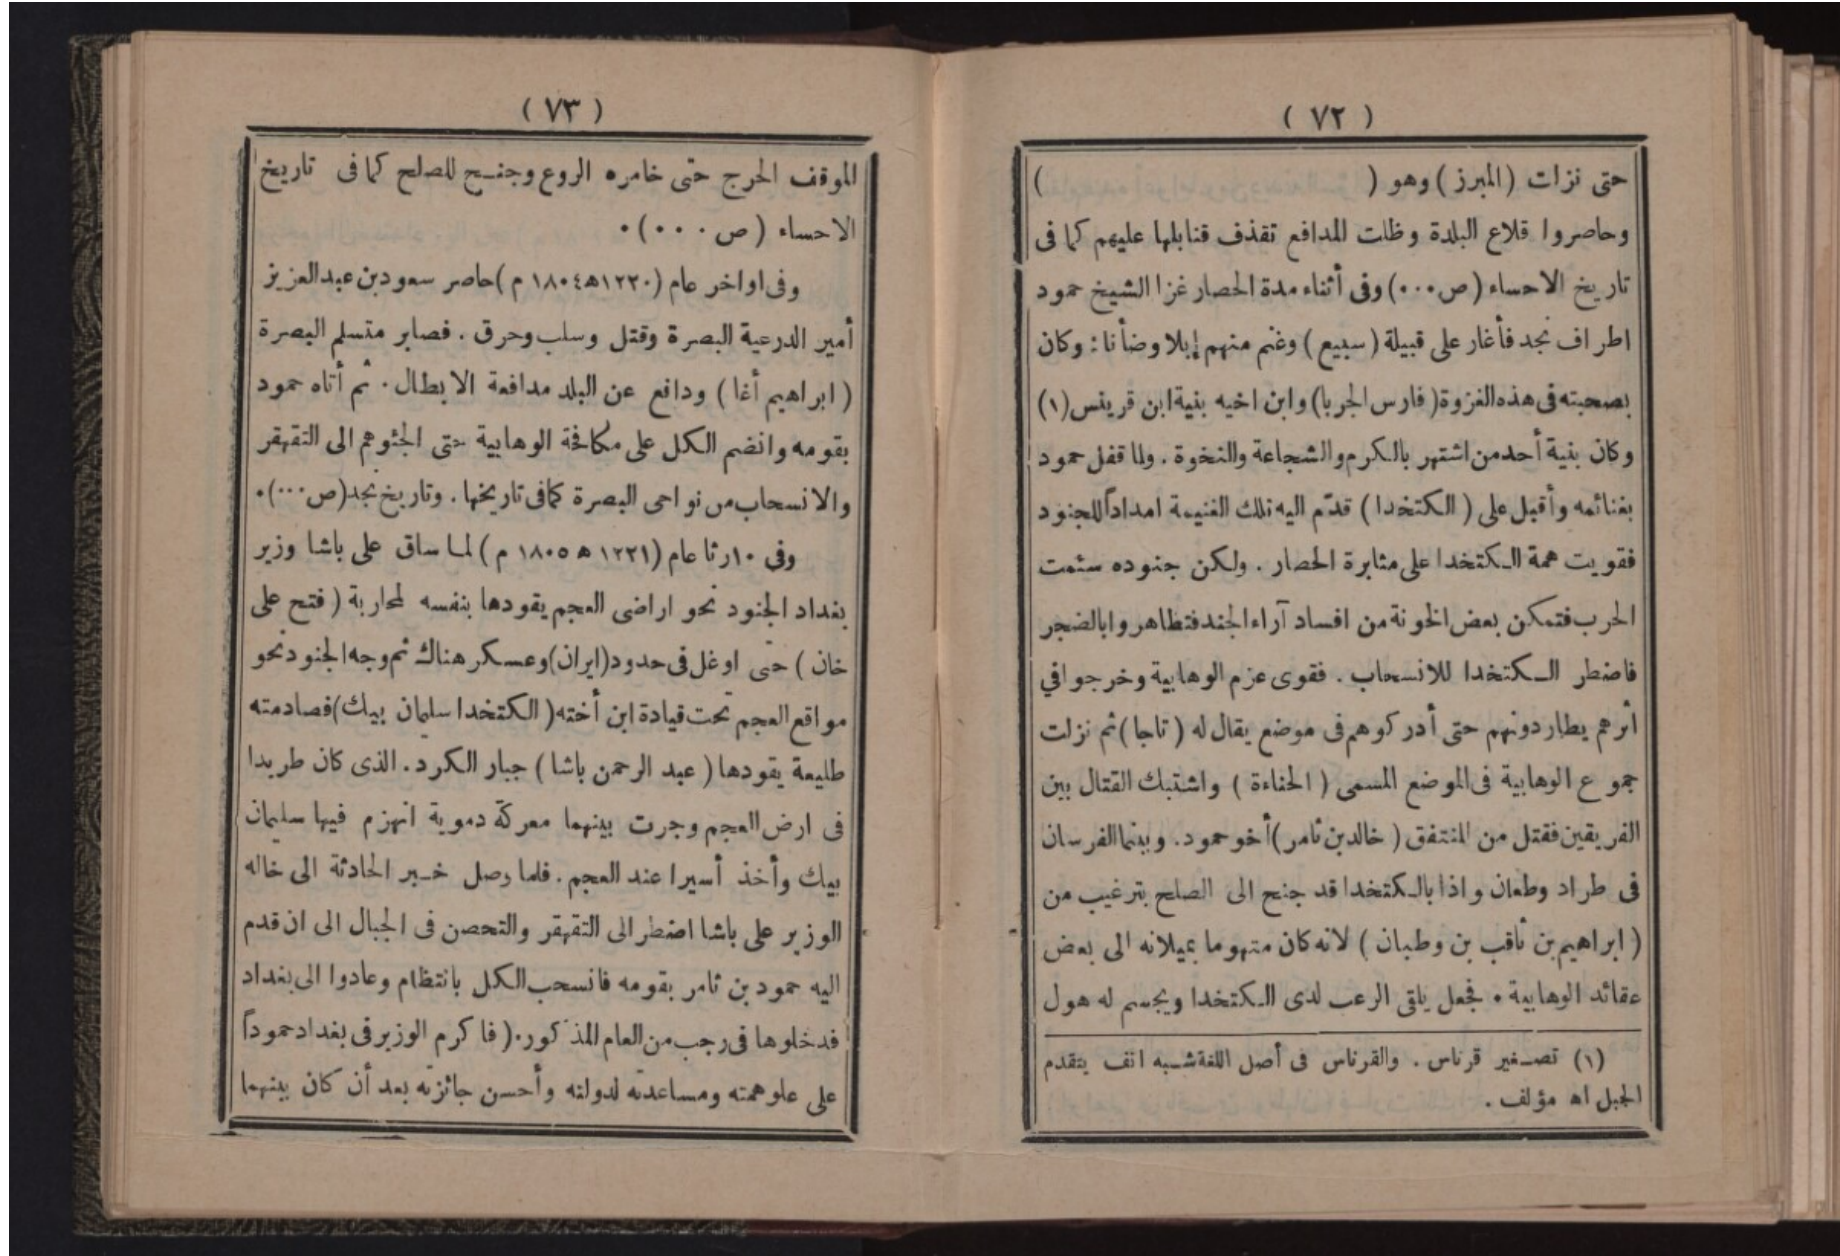 ( ٧٢ )
حتى نزلت (المبرز) وهو ( )
وحاصروا قلاع البلدة وظلت المدافع تقذف قنابلها عليهم كما فى
تاريخ الاحساء (ص٠٠٠) وفى أثناء مدة الحصار غزا الشيخ حمود
اطراف نجد فأغار على قبيلة (سبيع) وغنم منهم إبلا وضأنا: وكان
بصحبته فى هذه الغزوة (فارس الجربا) وابن اخيه بنية ابن قرينس (١)
وكان بنية أحد من اشتهر بالكرم والشجاعة والنخوة . ولما قفل حمود
بغنائمه وأقبل على (الكتخدا) قدّم اليه تلك الغنيمة امداداً للجنود
فقويت همة الكتخدا على مثابرة الحصار . ولكن جنوده سئمت
الحرب فتمكن بعض الخونة من افساد آراء الجند فتظاهروا بالضجر
فاضطر الكتخدا للانسحاب . فقوى عزم الوهابية وخرجوا في
أثرهم يطاردونهم حتى أدركوهم فى موضع يقال له (تاجا) ثم نزلت
جموع الوهابية فى الموضع المسمى (الحناءة) واشتبك القتال بين
الفريقين فقتل من المنتفق (خالد بن ثامر) أخو حمود. وبينما الفرسان
فى طراد وطعان واذا بالكتخدا قد جنح الى الصلح بترغيب من
(ابراهيم بن ثاقب بن وطبان) لانه كان متهوما بميلانه الى بعض
عقائد الوهابية . فجعل يلقى الرعب لدى الكتخدا ويجسم له هول
(١) تصغير قرناس . والقرناس فى أصل اللغة شبه انف يتقدم
الجبل اه مؤلف .
( ٧٣ )
الموقف الحرج حتى خامره الروع وجنح للصلح كما فى تاريخ
الاحساء (ص ٠٠٠) .
وفى اواخر عام (١٢٢٠ه ١٨٠٤ م) حاصر سعود بن عبد العزيز
أمير الدرعية البصرة وقتل وسلب وحرق . فصابر متسلم البصرة
(ابراهيم أغا) ودافع عن البلد مدافعة الابطال. ثم أتاه حمود
بقومه وانضم الكل على مكافحة الوهابية حتى الجئوهم الى التقهقر
والانسحاب من نواحى البصرة كما فى تاريخها . وتاريخ نجد (ص٠٠٠).
وفي ١٠ رثا عام (١٢٢١ ه ١٨٠٥ م) لما ساق على باشا وزير
بغداد الجنود نحو اراضى العجم يقودها بنفسه لمحاربة (فتح على
خان) حتى اوغل فى حدود (ايران) وعسكر هناك ثم وجه الجنود نحو
مواقع العجم تحت قيادة ابن أخته (الكتخدا سليمان بيك) فصادمته
طليعة يقودها (عبد الرحمن باشا) جبار الكرد. الذى كان طريدا
فى ارض العجم وجرت بينهما معركة دموية انهزم فيها سليمان
بيك وأخذ أسيرا عند العجم. فلما وصل خبر الحادثة الى خاله
الوزير على باشا اضطر الى التقهقر والتحصن فى الجبال الى ان قدم
اليه حمود بن ثامر بقومه فانسحب الكل بانتظام وعادوا الى بغداد
فدخلوها فى رجب من العام المذكور. (فاكرم الوزير فى بغداد حموداً
على علو همته ومساعدته لدولته وأحسن جائزته بعد أن كان بينهما